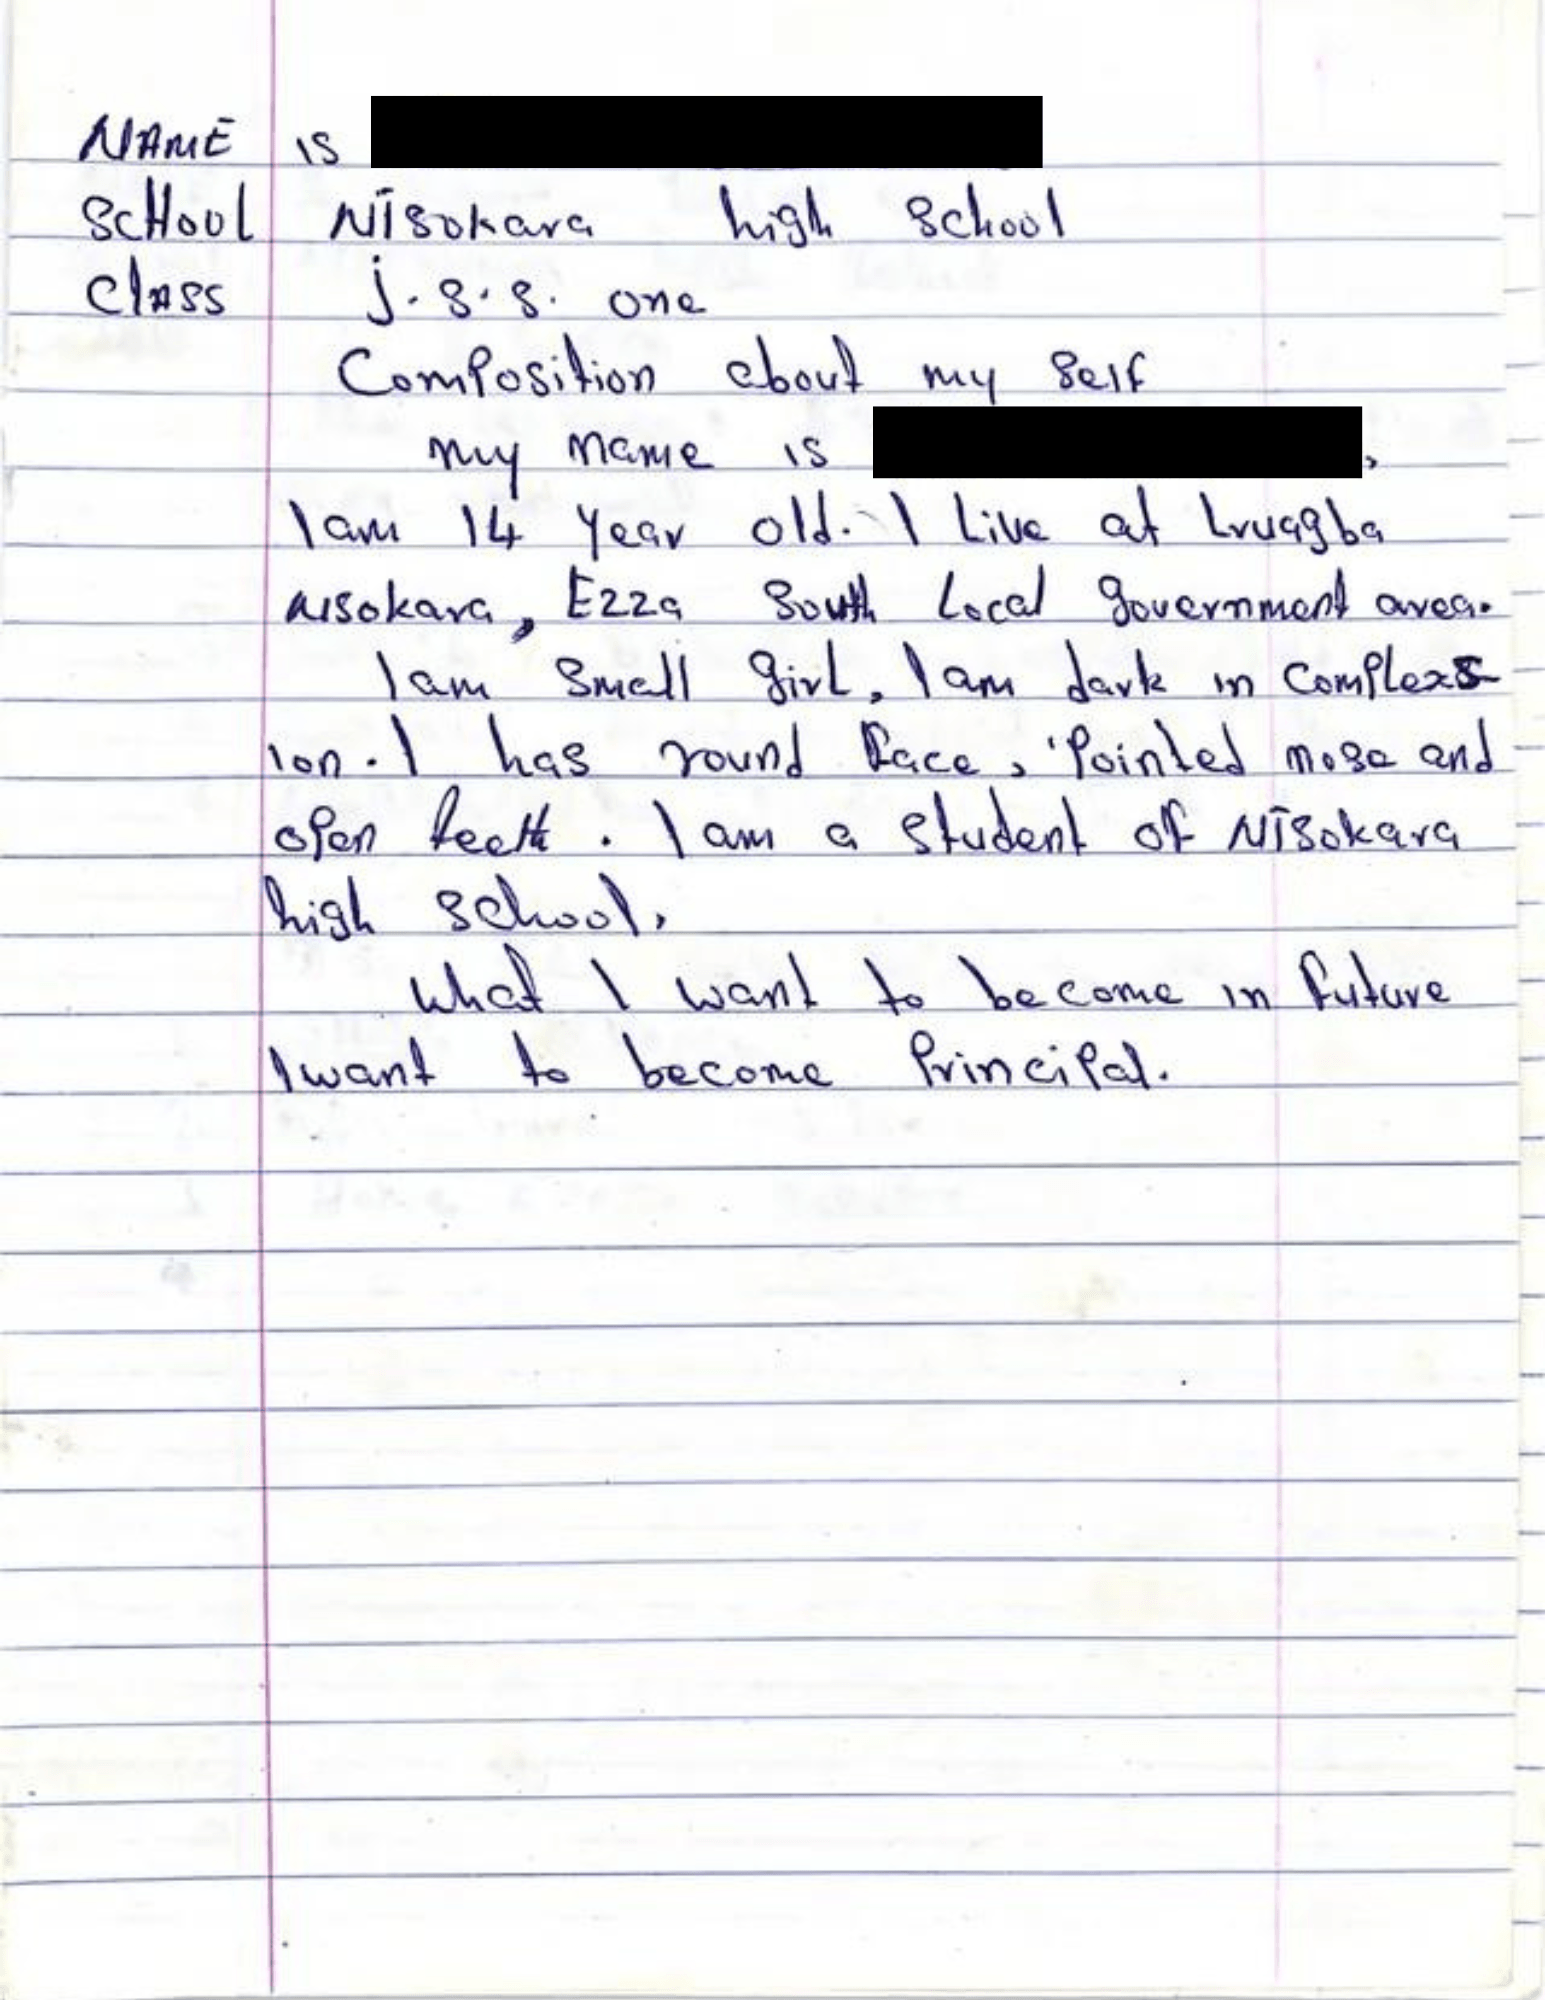 NAME is
SCHOOL Nisokara high School
Class J.S.S. one
Composition about my Self
my name is ,
I am 14 Year old. I Live at
Nsokara, Ezza South Local Government area.
I am Small Girl, I am dark in Complexs
ion. I has round face, Pointed nose and
open teeth. I am a Student of Nisokara
high School,
What I want to become in future
I want to become Principal.